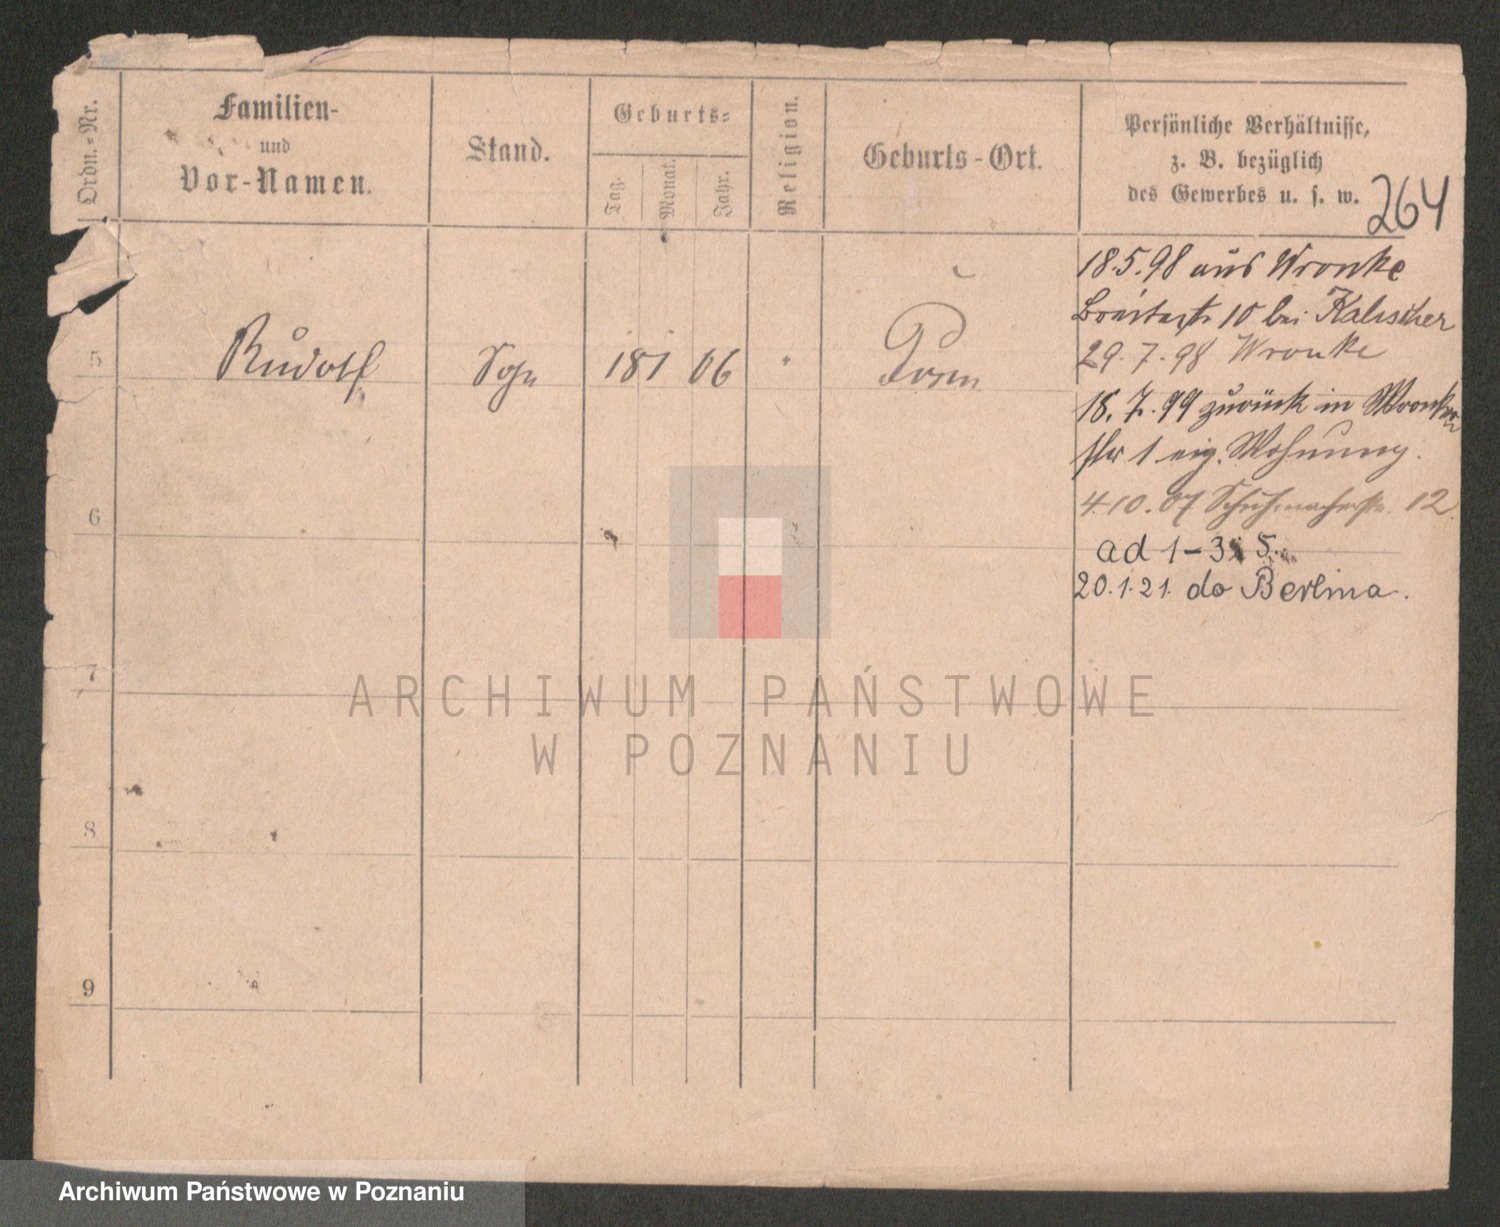 Ordn.-Nr.
Familien-
und
Vor-Namen.
Stand.
Geburts-
Tag.
Monat.
Jahr.
Religion.
Geburts-Ort.
Persönliche Verhältnisse,
z. B. bezüglich
des Gewerbes u. s. w.
264
18.5.98 aus Wronke
Breitestr 10 bei Kalischer
29.7.98 Wronke
5
Rudolf
Sohn
18 1 06
"
Posen
18.7.99 zurück in Wronker
str 1 eig. Wohnung.
4.10.07 Schuhmacherstr. 12.
6
ad 1-3 i 5.
20.1.21. do Berlina.
7
ARCHIWUM PAŃSTWOWE
W POZNANIU
8
9
Archiwum Państwowe w Poznaniu